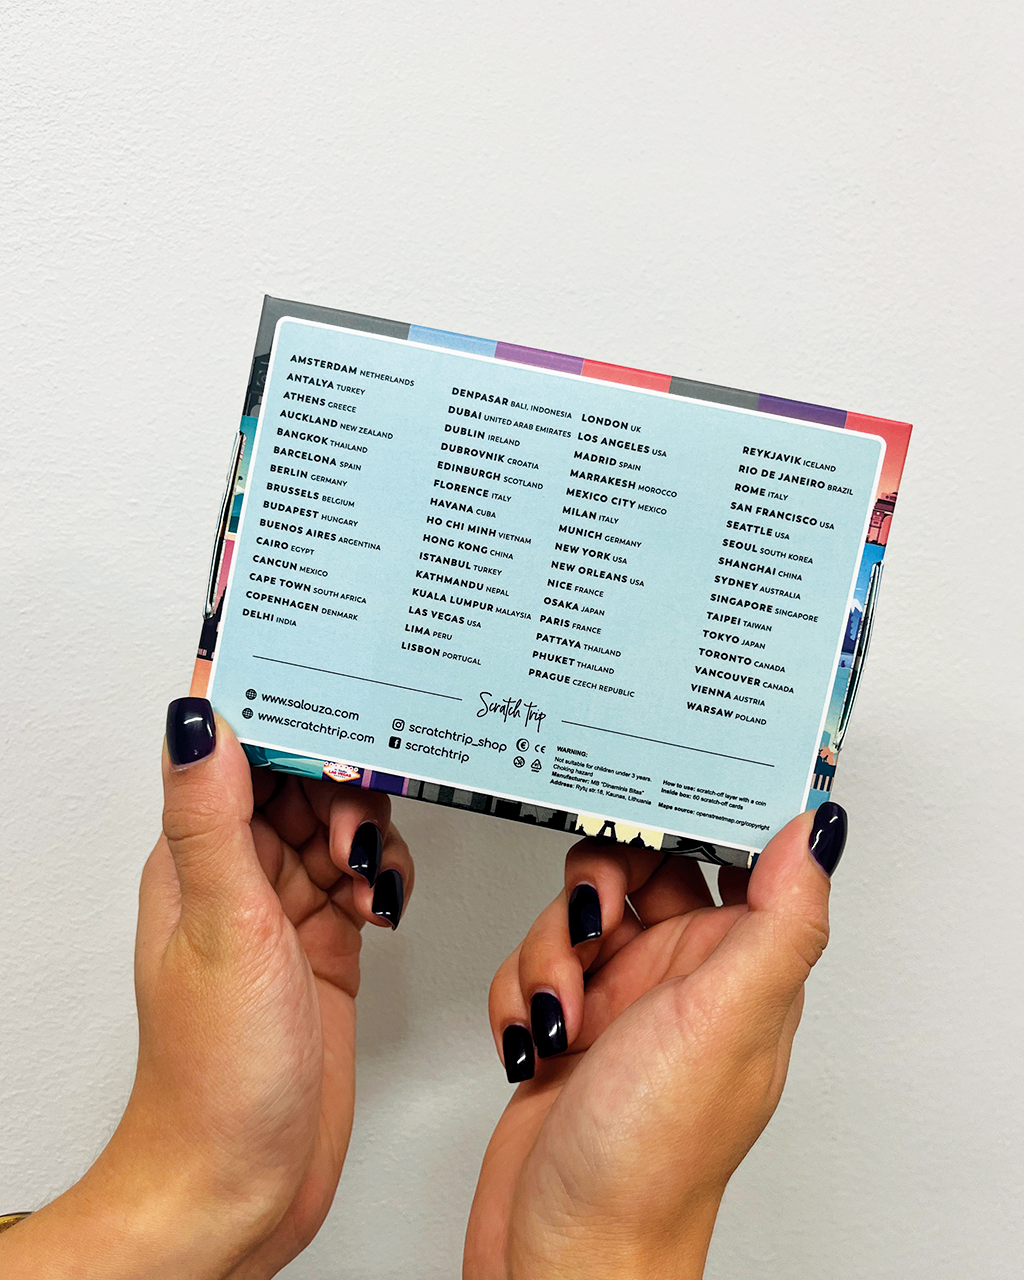 AMSTERDAM NETHERLANDS
ANTALYA TURKEY
ATHENS GREECE
AUCKLAND NEW ZEALAND
BANGKOK THAILAND
BARCELONA SPAIN
BERLIN GERMANY
BRUSSELS BELGIUM
BUDAPEST HUNGARY
BUENOS AIRES ARGENTINA
CAIRO EGYPT
CANCUN MEXICO
CAPE TOWN SOUTH AFRICA
COPENHAGEN DENMARK
DELHI INDIA
DENPASAR BALI, INDONESIA
DUBAI UNITED ARAB EMIRATES
DUBLIN IRELAND
DUBROVNIK CROATIA
EDINBURGH SCOTLAND
FLORENCE ITALY
HAVANA CUBA
HO CHI MINH VIETNAM
HONG KONG CHINA
ISTANBUL TURKEY
KATHMANDU NEPAL
KUALA LUMPUR MALAYSIA
LAS VEGAS USA
LIMA PERU
LISBON PORTUGAL
LONDON UK
LOS ANGELES USA
MADRID SPAIN
MARRAKESH MOROCCO
MEXICO CITY MEXICO
MILAN ITALY
MUNICH GERMANY
NEW YORK USA
NEW ORLEANS USA
NICE FRANCE
OSAKA JAPAN
PARIS FRANCE
PATTAYA THAILAND
PHUKET THAILAND
PRAGUE CZECH REPUBLIC
REYKJAVIK ICELAND
RIO DE JANEIRO BRAZIL
ROME ITALY
SAN FRANCISCO USA
SEATTLE USA
SEOUL SOUTH KOREA
SHANGHAI CHINA
SYDNEY AUSTRALIA
SINGAPORE SINGAPORE
TAIPEI TAIWAN
TOKYO JAPAN
TORONTO CANADA
VANCOUVER CANADA
VIENNA AUSTRIA
WARSAW POLAND
Scratch trip
www.salouza.com
www.scratchtrip.com
scratchtrip_shop
scratchtrip
CE
WARNING:
Not suitable for children under 3 years.
Choking hazard
Manufacturer: MB "Dinaminis Bitas"
Address: Rytų str.18, Kaunas, Lithuania
How to use: scratch-off layer with a coin
Inside box: 60 scratch-off cards
Maps source: openstreetmap.org/copyright
LAS VEGAS